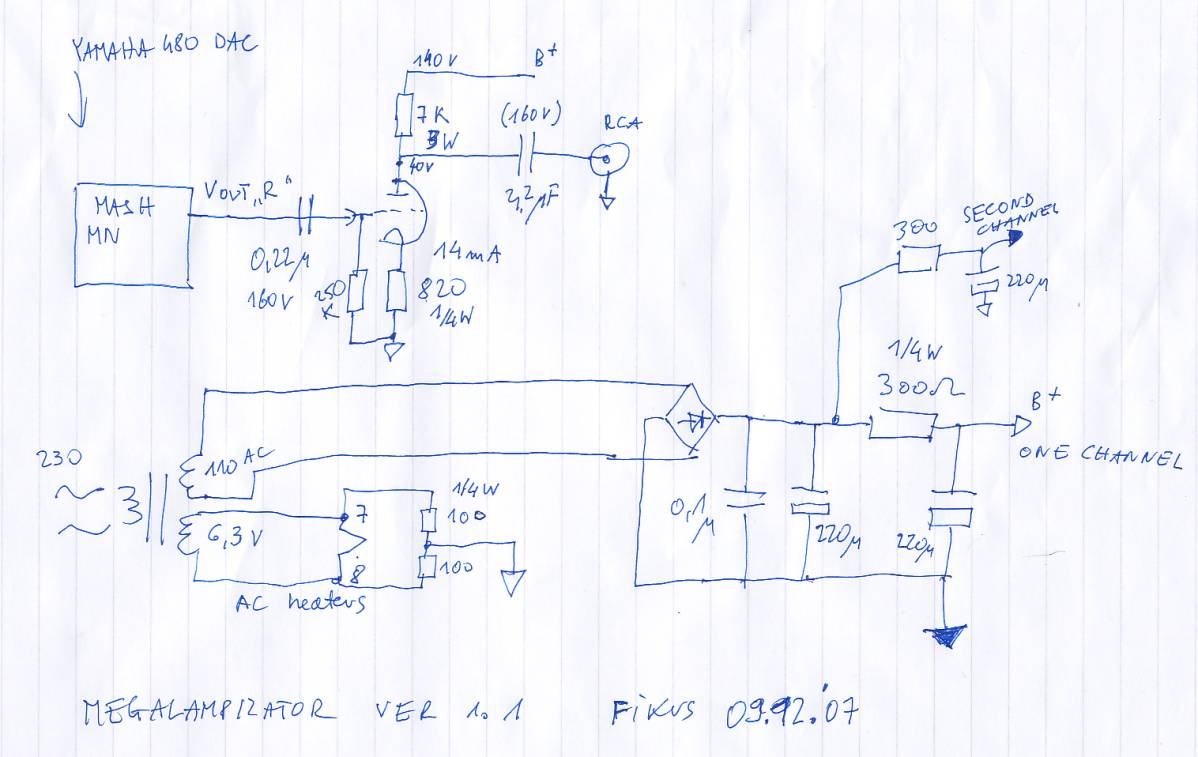 YAMAHA 480 DAC
140V
B+
7K
3W
(160V)
RCA
40V
2,2µF
MASH
MN
VOUT „R"
0,22µ
160V
250
K
14mA
820
1/4W
300
SECOND
CHANNEL
220µ
1/4W
300Ω
B+
ONE CHANNEL
230
110 AC
6,3V
7
8
1/4W
100
100
AC heaters
0,1
µ
220µ
220µ
MEGALAMPIZATOR VER 1.1 FIKUS 09.12.'07